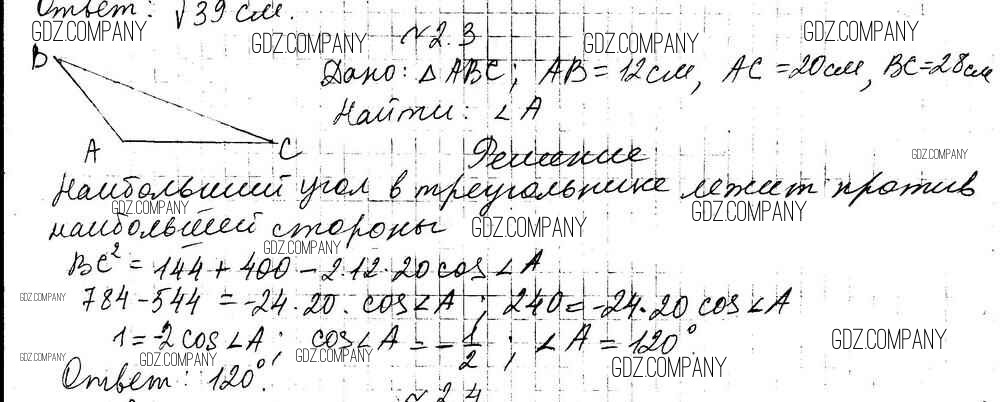 Ответ: √39 см.
GDZ.COMPANY GDZ.COMPANY GDZ.COMPANY GDZ.COMPANY
№2.3
B
Дано: △ABC; AB = 12см, AC = 20см, BC = 28см
Найти: ∠A
A C
Решение
GDZ.COMPANY
Наибольший угол в треугольнике лежит против
GDZ.COMPANY GDZ.COMPANY
наибольшей стороны
GDZ.COMPANY GDZ.COMPANY
BC² = 144 + 400 - 2·12·20 cos∠A
GDZ.COMPANY
784 - 544 = -24·20·cos∠A; 240 = -24·20 cos∠A
1 = -2 cos∠A; cos∠A = -1/2; ∠A = 120°.
GDZ.COMPANY GDZ.COMPANY GDZ.COMPANY GDZ.COMPANY GDZ.COMPANY
Ответ: 120°.
№2.4